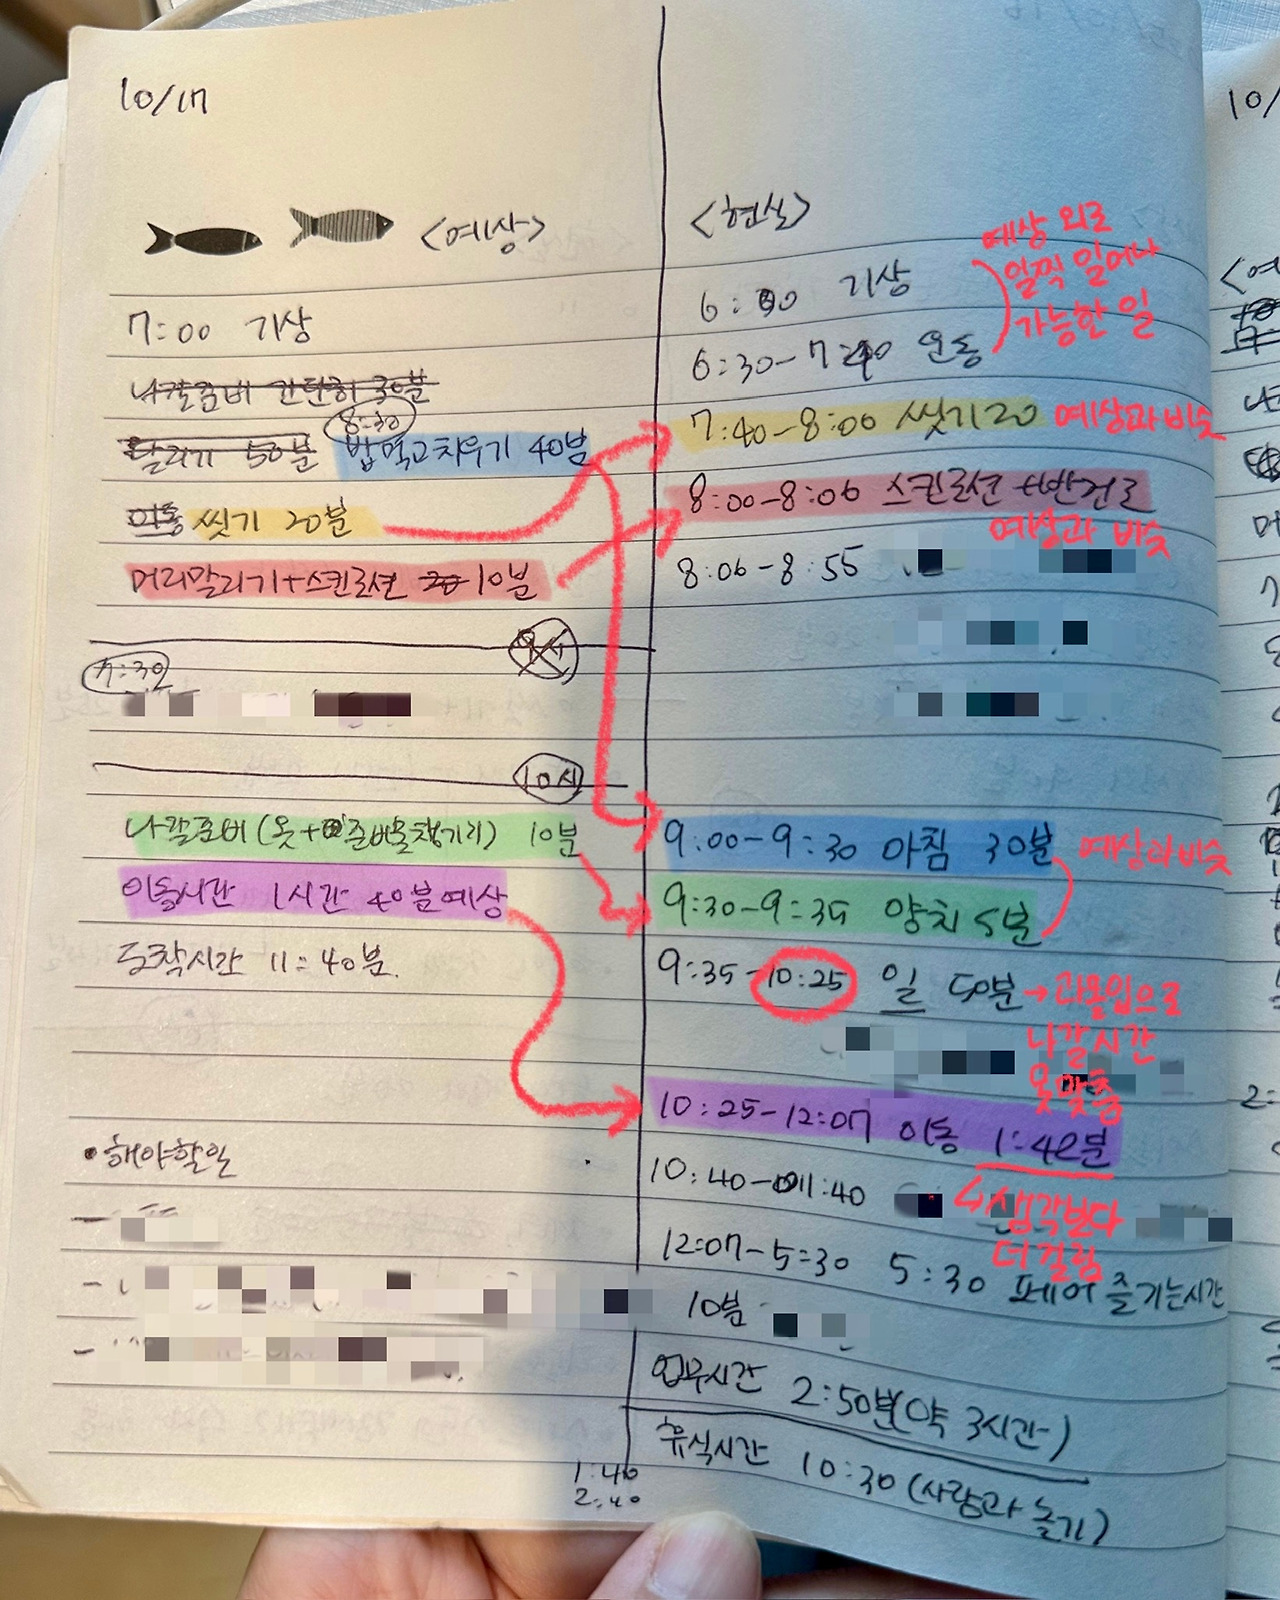 10/17
<예상>
7:00 기상
나갈준비 간단히 30분
8:30
달리기 50분 밥먹고치우기 40분
이동 씻기 20분
머리말리기+스킨로션 20 10분
9시
7:30
10시
나갈준비(옷+준비물챙기기) 10분
이동시간 1시간 40분예상
도착시간 11:40분.
•해야할일
1:40
2:40
<현실>
예상 외로
일찍 일어나
가능한 일
6:00 기상
6:30-7:40 운동
7:40-8:00 씻기20 예상과비슷
8:00-8:06 스킨로션+반건조
예상과 비슷
8:06-8:55
9:00-9:30 아침 30분 예상과비슷
9:30-9:35 양치 5분
9:35-10:25 일 50분→과몰입으로
나갈시간
못맞춤
10:25-12:07 이동 1:42분
10:40-11:40
↳생각보다
더걸림
12:07-5:30 5:30 페어 즐기는시간
10분
업무시간 2:50분(약 3시간)
휴식시간 10:30(사람과 놀기)
10/
<예